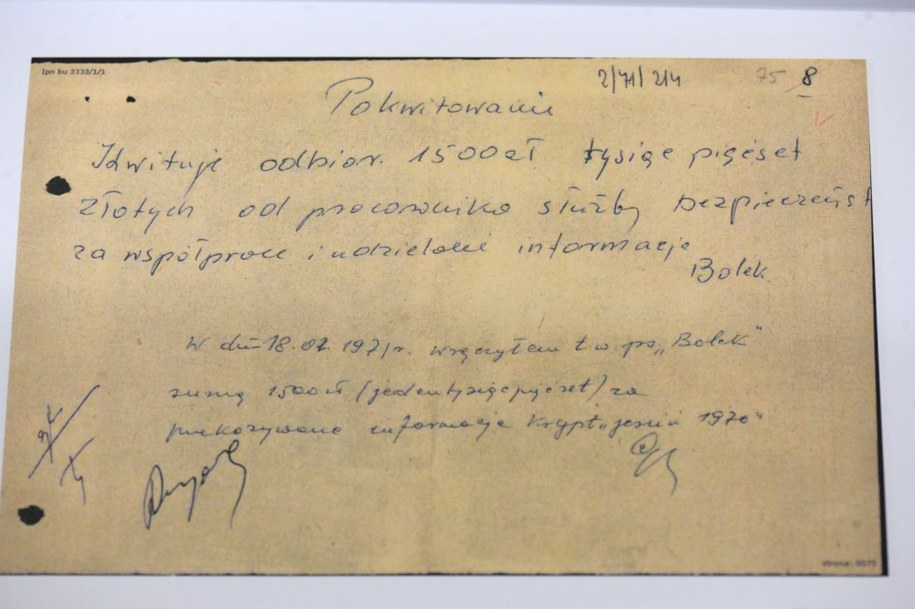 Ipn bu 3333/1/1
2/71/214
75 8
Pokwitowanie
Kwituję odbiór. 1500zł tysiąc pięćset
złotych od pracownika służby bezpieczeńst
za współpracę i udzielanie informacje
Bolek
W dniu 18.02.1971r. wręczyłem t.w. ps. „Bolek"
sumę 1500zł /jedentysiącpięćset/ za
przekazywane informacje krypt. „Jesień 1970"
strona: 0075